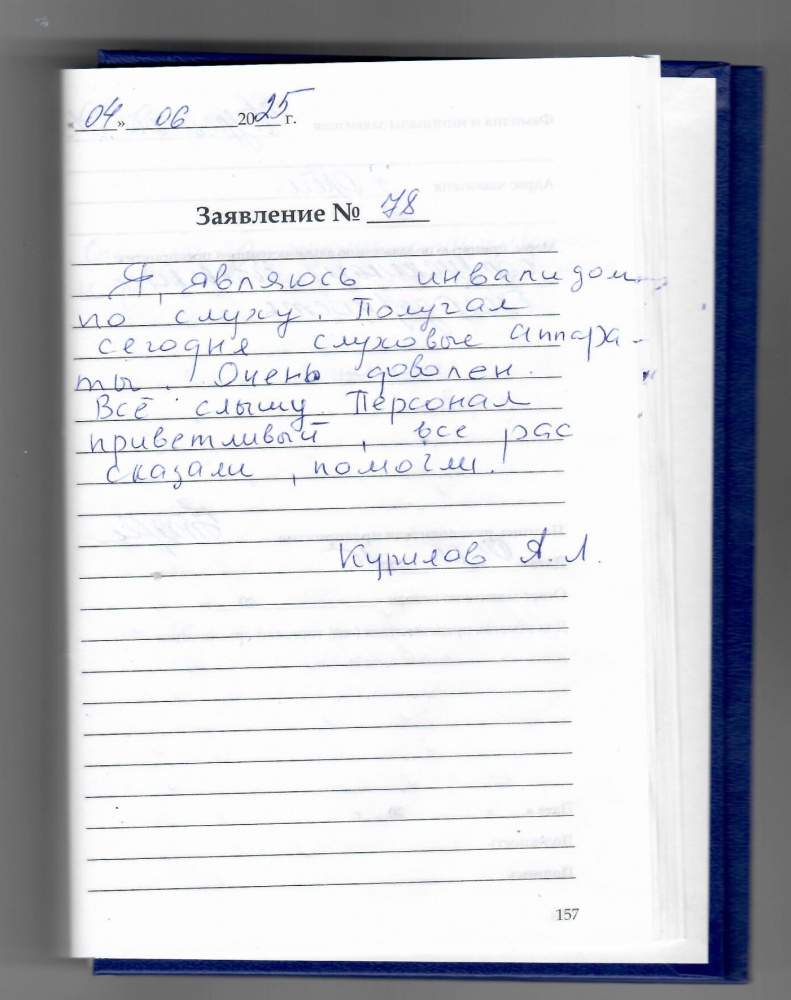 «04» 06 2025 г.
Заявление № 78
Я, являюсь инвалидом
по слуху. Получал
сегодня слуховые аппара-
ты. Очень доволен.
Всё слышу. Персонал
приветливый, все рас
сказали, помогли.
Курилов А. Л.
157